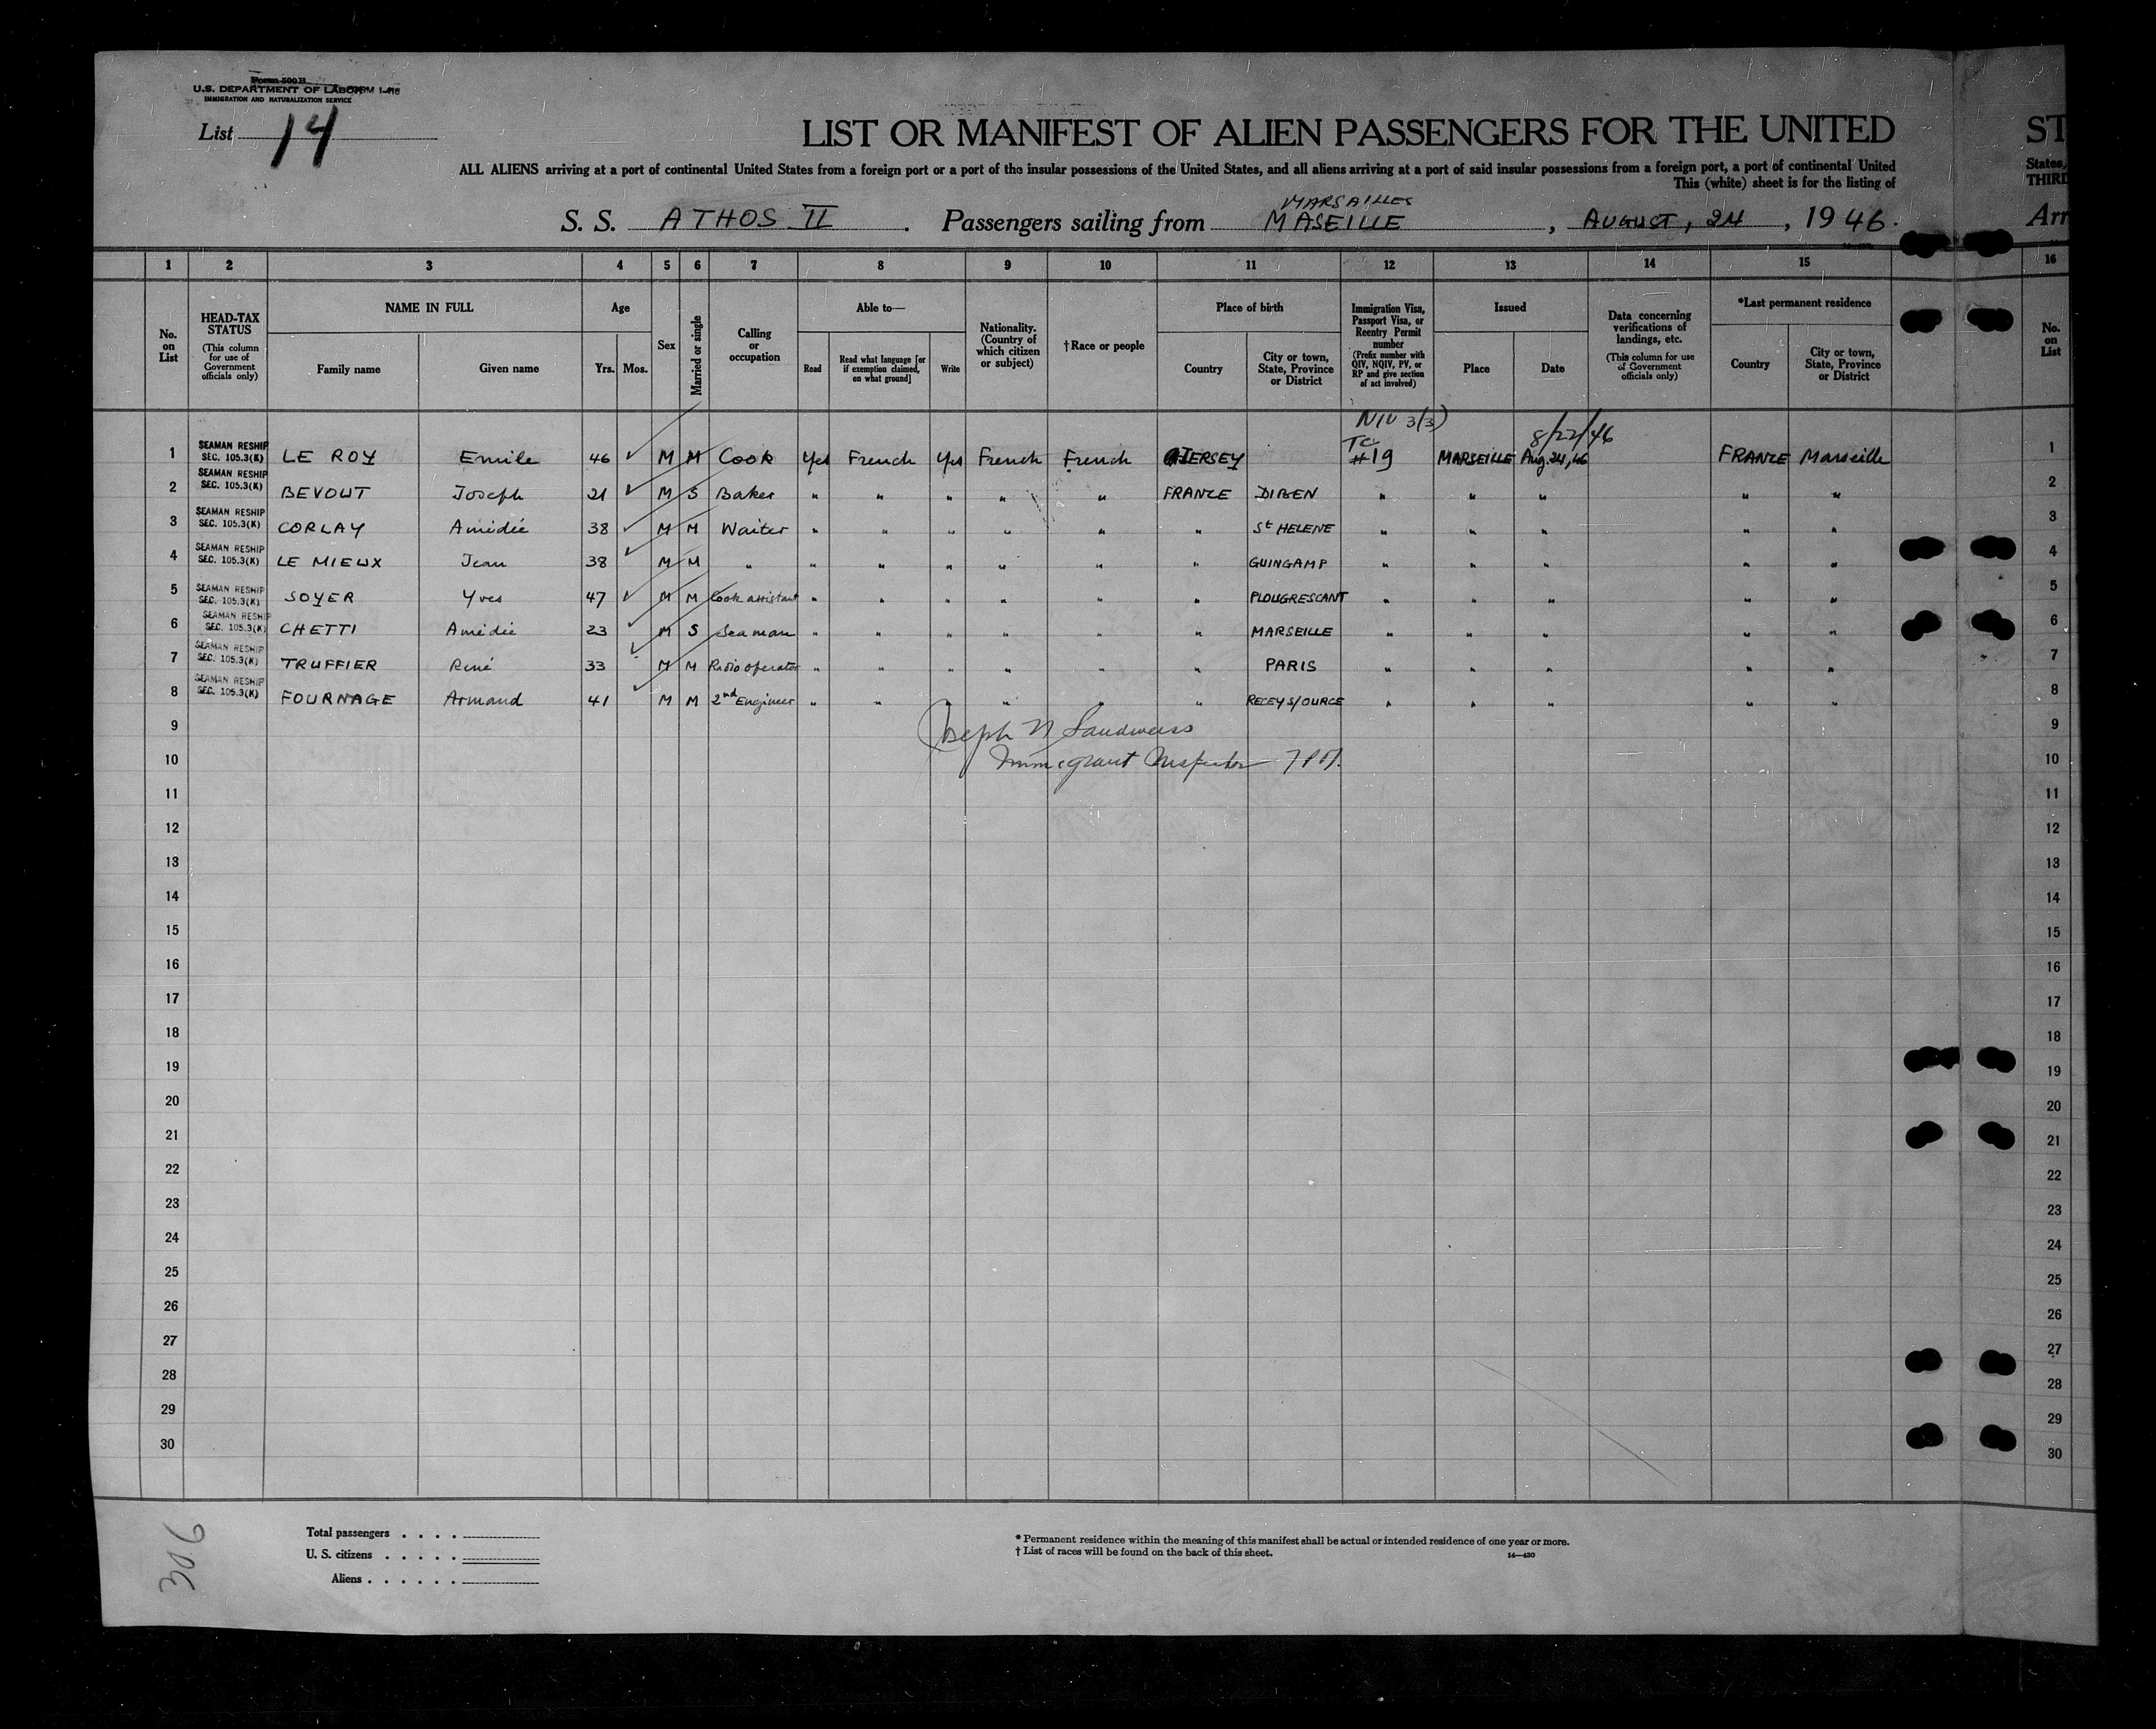 Form 500 B
U.S. DEPARTMENT OF LABOR FORM I-416
IMMIGRATION AND NATURALIZATION SERVICE
List 14
LIST OR MANIFEST OF ALIEN PASSENGERS FOR THE UNITED ST
ALL ALIENS arriving at a port of continental United States from a foreign port or a port of the insular possessions of the United States, and all aliens arriving at a port of said insular possessions from a foreign port, a port of continental United States,
This (white) sheet is for the listing of THIRD
MARSAILLES
S. S. ATHOS II . Passengers sailing from MASEILLE , AUGUST, 24 , 19 46. Arr
1 2 3 4 5 6 7 8 9 10 11 12 13 14 15 16
No. on List
HEAD-TAX STATUS
(This column for use of Government officials only)
NAME IN FULL
Family name Given name
Age
Yrs. Mos.
Sex
Married or single
Calling or occupation
Able to—
Read
Read what language [or if exemption claimed, on what ground]
Write
Nationality. (Country of which citizen or subject)
†Race or people
Place of birth
Country
City or town, State, Province or District
Immigration Visa, Passport Visa, or Reentry Permit number
(Prefix number with QIV, NQIV, PV, or RP and give section of act involved)
Issued
Place Date
Data concerning verifications of landings, etc.
(This column for use of Government officials only)
*Last permanent residence
Country
City or town, State, Province or District
No. on List
NIV 3/3)
8/22/46
1 SEAMAN RESHIP SEC. 105.3(K) LE ROY Emile 46 M M Cook Yes French Yes French French JERSEY TC #19 MARSEILLE Aug. 24, 46 FRANCE Marseille 1
2 SEAMAN RESHIP SEC. 105.3(K) BEVOUT Joseph 21 M S Baker " " " " " FRANCE " " " " " 2
3 SEAMAN RESHIP SEC. 105.3(K) CORLAY Amédée 38 M M Waiter " " " " " " St HELENE " " " " " 3
4 SEAMAN RESHIP SEC. 105.3(K) LE MIEUX Jean 38 M M " " " " " " " GUINGAMP " " " " " 4
5 SEAMAN RESHIP SEC. 105.3(K) SOYER Yves 47 M M Cook assistant " " " " " " PLOUGRESCANT " " " " " 5
6 SEAMAN RESHIP SEC. 105.3(K) CHETTI Amédée 23 M S Seaman " " " " " " MARSEILLE " " " " " 6
7 SEAMAN RESHIP SEC. 105.3(K) TRUFFIER René 33 M M Radio operator " " " " " " PARIS " " " " " 7
8 SEAMAN RESHIP SEC. 105.3(K) FOURNAGE Armand 41 M M 2nd Engineer " " " " " " RECEY S/OURCE " " " " " 8
9 Joseph N Sandweiss 9
10 Immigrant Inspector 10
11 11
12 12
13 13
14 14
15 15
16 16
17 17
18 18
19 19
20 20
21 21
22 22
23 23
24 24
25 25
26 26
27 27
28 28
29 29
30 30
306
Total passengers . . . .
U. S. citizens . . . . .
Aliens . . . . . .
* Permanent residence within the meaning of this manifest shall be actual or intended residence of one year or more.
† List of races will be found on the back of this sheet.
14—430